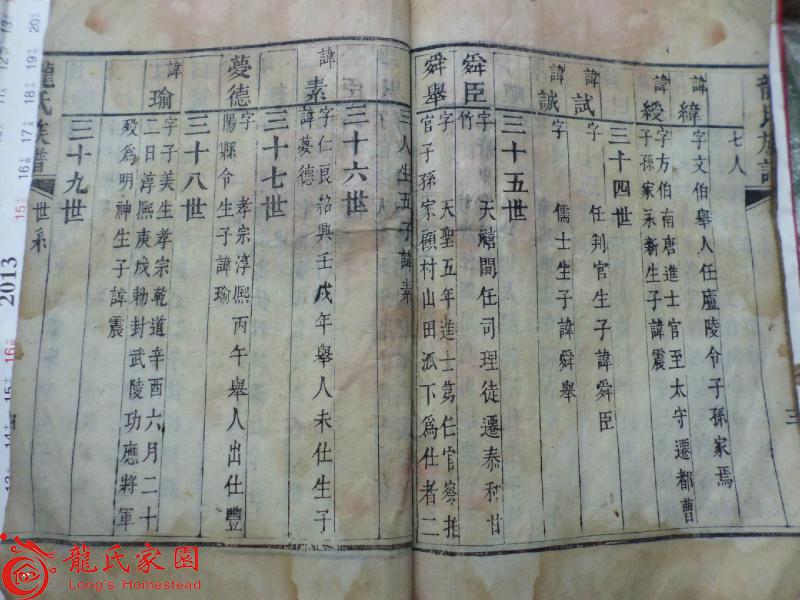 龍氏族譜
七人
諱緯 字文伯舉人任廬陵令子孫家焉
諱綬 字方伯南唐進士官至太守遷都曹
子孫家永新生子諱震
三十四世
諱試 字 任判官生子諱舜臣
諱誠 字 儒士生子諱舜舉
三十五世
舜臣 字 天禧間任司理徒遷泰和甘
竹
舜舉 字 天聖五年進士第仁官察推
官子孫家顧村山田派下為仕者二
三人生五子諱素
三十六世
諱素 字仁良紹興壬戌年舉人未仕生子
諱夢德
三十七世
夢德 字 孝宗淳熙丙午舉人出仕豐
陽縣令生子諱瑜
三十八世
諱瑜 字子美生孝宗乾道辛酉六月二十
二日淳熙庚戍勅封武陵功應將軍
歿為明神生子諱震
三十九世
龍氏族譜 世系
2013
龍氏家園
Long's Homestead